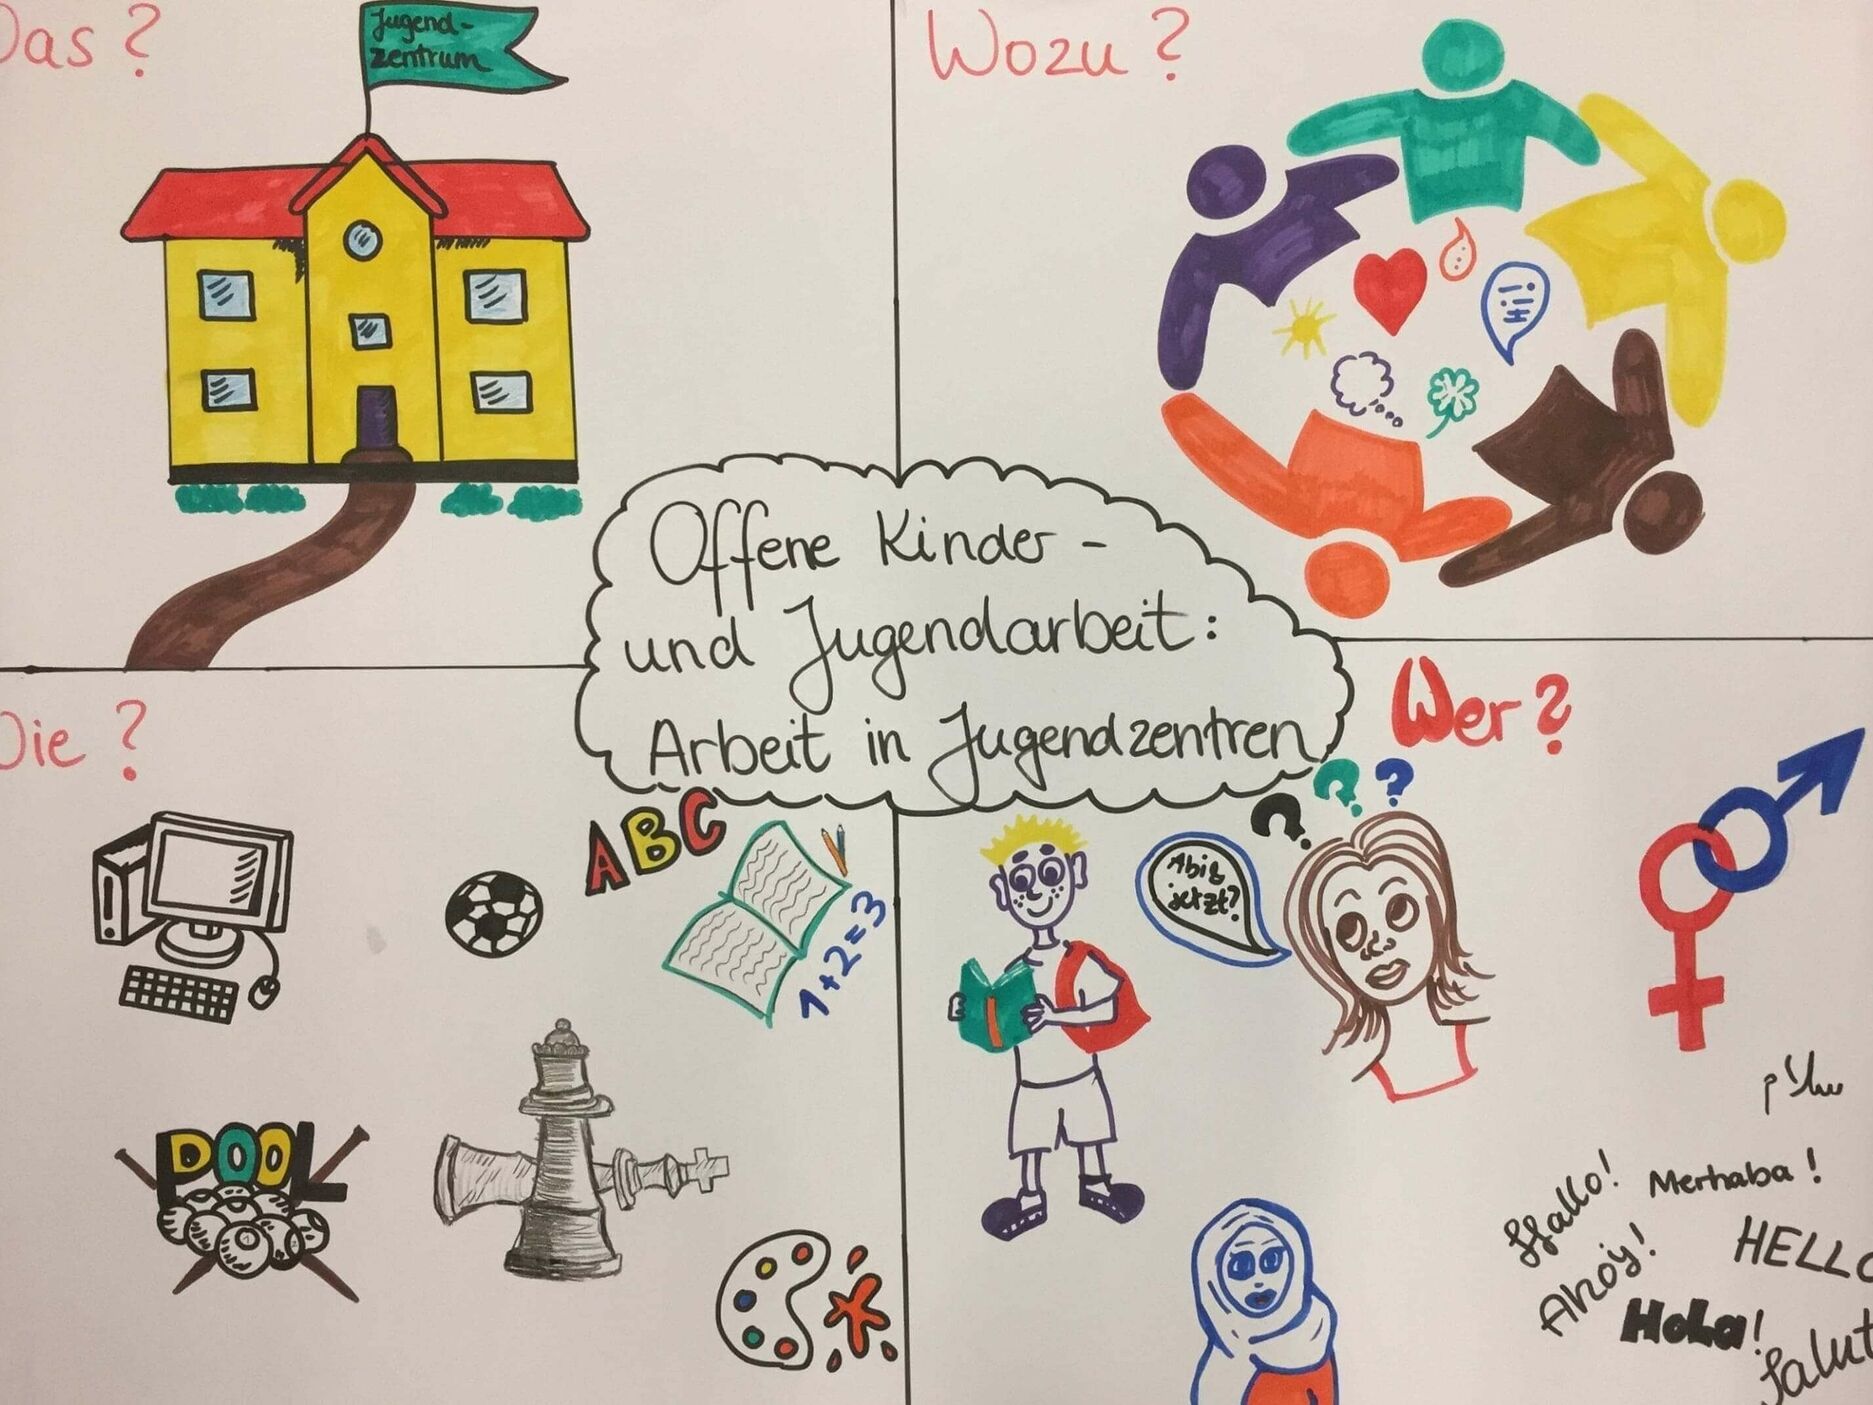 Das ?
Jugend-
zentrum
Wozu ?
Offene Kinder -
und Jugendarbeit:
Arbeit in Jugendzentren
Die ?
ABC
1+2=3
POOL
Wer ?
? ? ?
Abi &
jetzt?
سلام
Hallo!
Merhaba !
Ahoj!
HELLO
Hola!
Salut